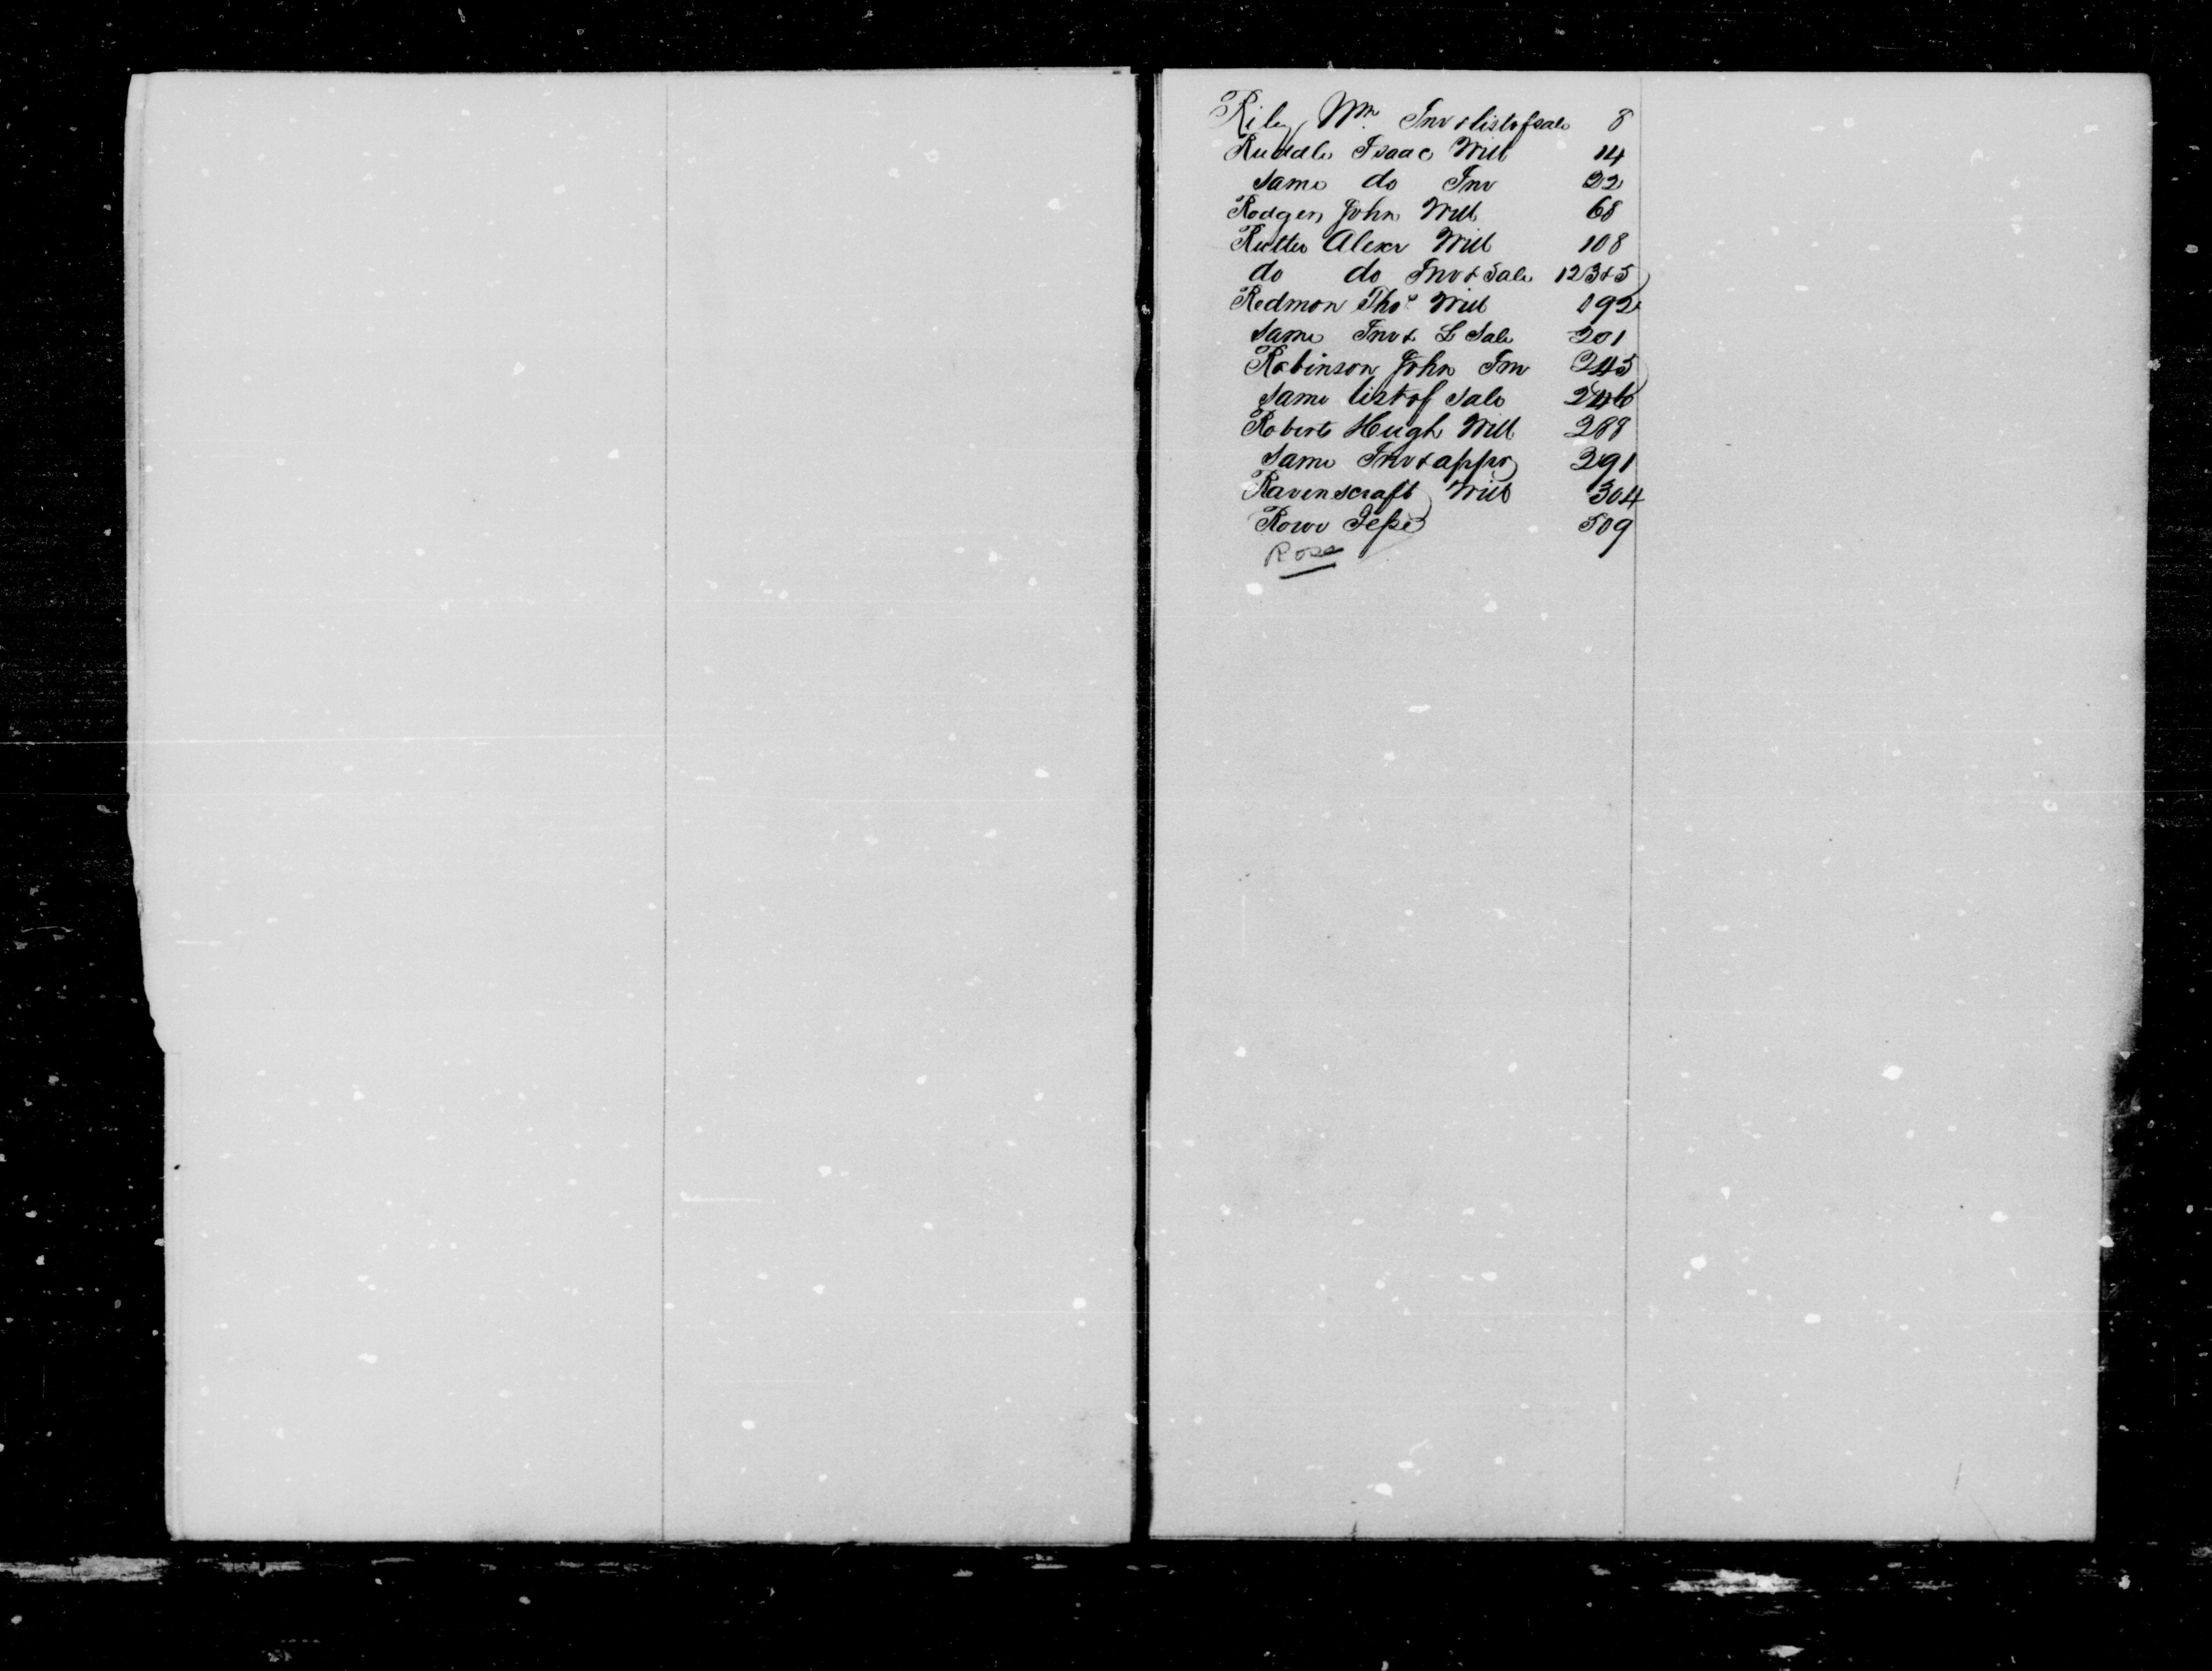 Riley, Wm Inv & list of sale 8
Ruddle Isaac Will 14
same do Inv 22
Rodgers John Will 68
Rutter Alexr Will 108
do do Inv & Sale 123 & 5
Redmon Thos Will 192
same Inv & L Sale 201
Robinson John Inv 245
same list of sale 246
Roberts Hugh Will 288
same Inv & appr 291
Ravenscraft Will 304
Rowe Jesse 509
Rose